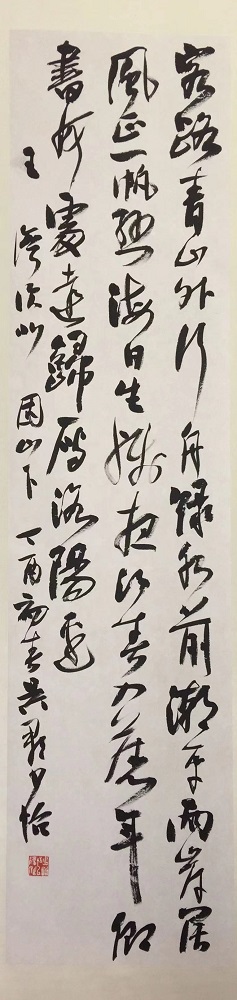 客路青山外行舟綠水前潮平兩岸闊
風正一帆懸海日生殘夜江春入舊年鄉
書何處達歸雁洛陽邊
王灣次北固山下 丁酉初春吳